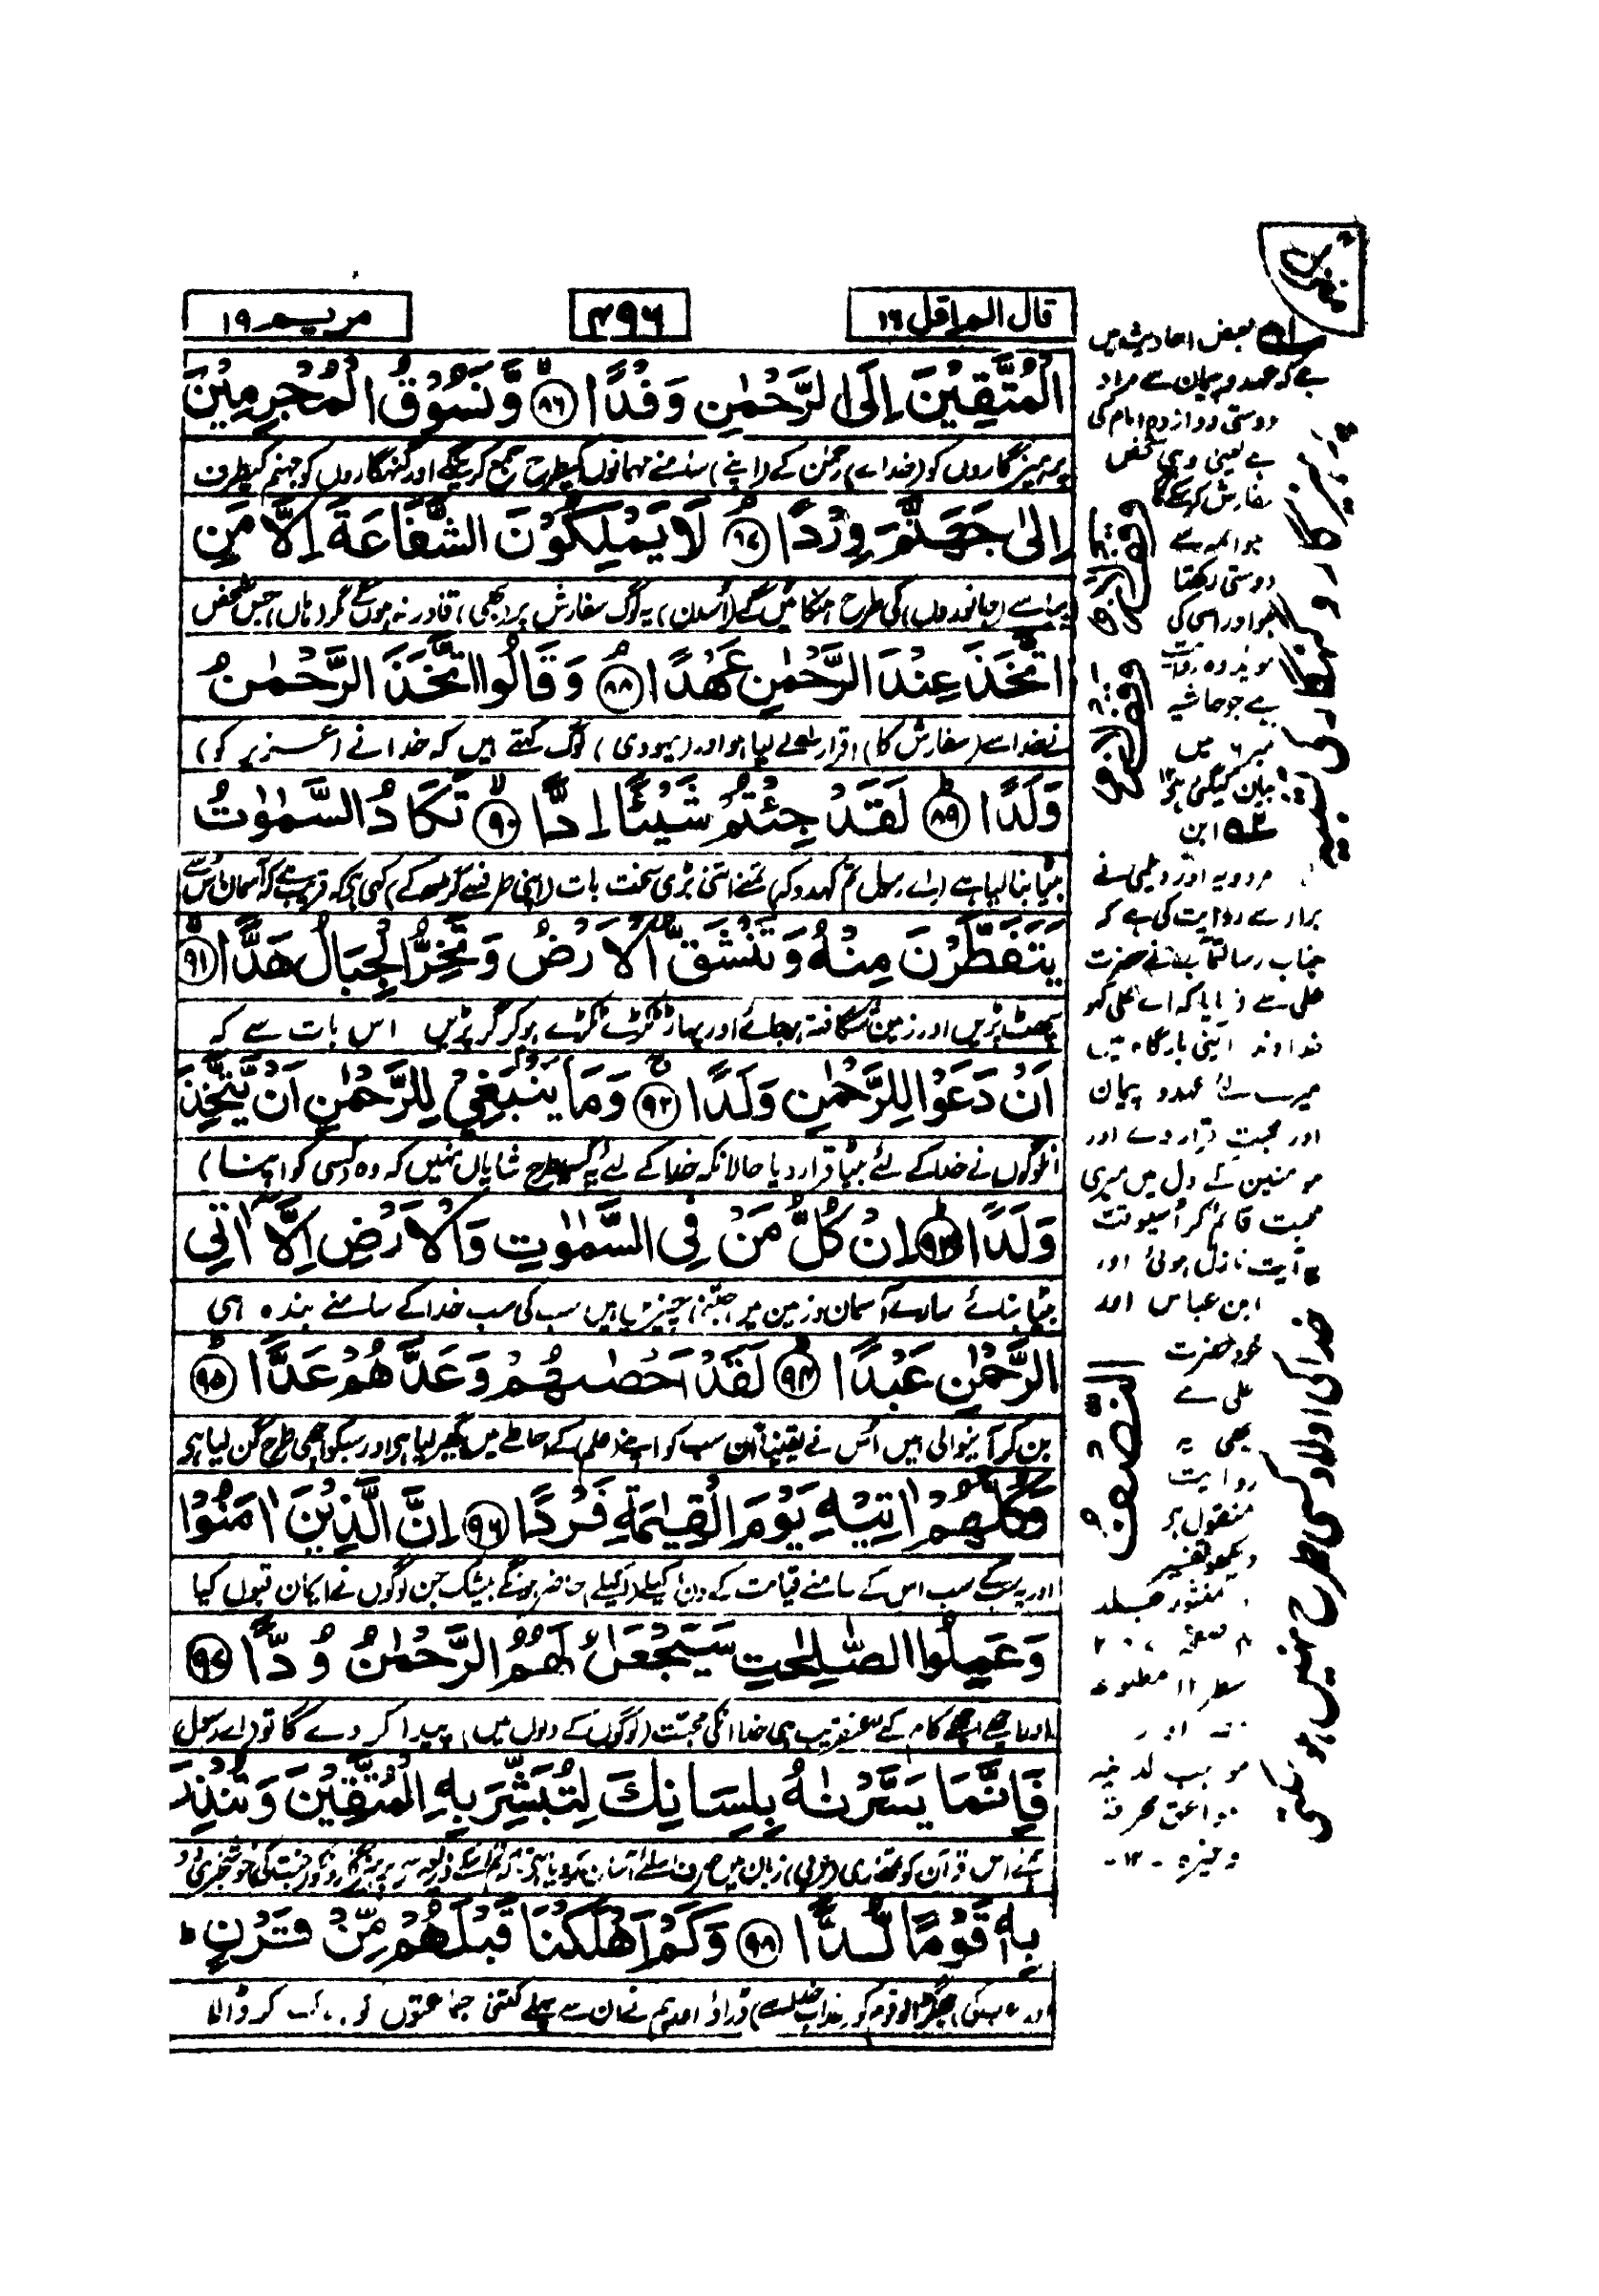 قال الم اقل ۱۶
۴۹۶
مریم ۱۹
الْمُتَّقِيْنَ اِلَى الرَّحْمٰنِ وَفْدًا ۸۶ وَّنَسُوْقُ الْمُجْرِمِيْنَ
پرہیزگاروں کو (خدائے) رحمٰن کے (اپنے) سامنے مہمانوں کیطرح جمع کرینگے اور گنہگاروں کو جہنم کیطرف
اِلٰى جَهَنَّمَ وِرْدًا ۸۷ لَا يَمْلِكُوْنَ الشَّفَاعَةَ اِلَّا مَنِ
پیاسے (جانوروں) کی طرح ہنکائیں گے (اُسدن) یہ لوگ سفارش پر (بھی) قادر نہ ہوں گے مگر (ہاں) جس شخص
اتَّخَذَ عِنْدَ الرَّحْمٰنِ عَهْدًا ۸۸ وَقَالُوا اتَّخَذَ الرَّحْمٰنُ
نے خدا سے (سفارش کا) اقرار لے لیا ہو اور (یہودی) لوگ کہتے ہیں کہ خدا نے (عزیر کو)
وَلَدًا ۸۹ لَقَدْ جِئْتُمْ شَيْئًا اِدًّا ۹۰ تَكَادُ السَّمٰوٰتُ
بیٹا بنا لیا ہے (اے رسول تم کہدو کہ) تمنے اتنی بڑی سخت بات (اپنی طرف سے گڑھ کے) کہی ہے کہ قریب ہے کہ آسمان اس سے
يَتَفَطَّرْنَ مِنْهُ وَتَنْشَقُّ الْاَرْضُ وَتَخِرُّ الْجِبَالُ هَدًّا ۹۱
پھٹ پڑیں اور زمین شگافتہ ہو جائے اور پہاڑ ٹکڑے ٹکڑے ہو کر گر پڑیں اس بات سے کہ
اَنْ دَعَوْا لِلرَّحْمٰنِ وَلَدًا ۹۲ وَمَا يَنْبَغِيْ لِلرَّحْمٰنِ اَنْ يَّتَّخِذَ
ان لوگوں نے خدا کے لئے بیٹا قرار دیا حالانکہ خدا کے لئے یہ کسی طرح شایاں نہیں کہ وہ (کسی کو اپنا)
وَلَدًا ۹۳ اِنْ كُلُّ مَنْ فِى السَّمٰوٰتِ وَالْاَرْضِ اِلَّا اٰتِى
بیٹا بنائے سارے آسمان و زمین میں جتنی چیزیں ہیں سب کی سب خدا کے سامنے بندہ ہی
الرَّحْمٰنِ عَبْدًا ۹۴ لَقَدْ اَحْصٰىهُمْ وَعَدَّهُمْ عَدًّا ۹۵
بن کر آنیوالی ہیں اُس نے یقیناً ان سب کو اپنے (علم) کے احاطے میں گھیر لیا ہے اور سبکو اچھی طرح گن لیا ہے
وَكُلُّهُمْ اٰتِيْهِ يَوْمَ الْقِيٰمَةِ فَرْدًا ۹۶ اِنَّ الَّذِيْنَ اٰمَنُوْا
اور یہ سب کے سب اس کے سامنے قیامت کے دن اکیلے (اکیلے) حاضر ہونگے بیشک جن لوگوں نے ایمان قبول کیا
وَعَمِلُوا الصّٰلِحٰتِ سَيَجْعَلُ لَهُمُ الرَّحْمٰنُ وُدًّا ۹۷
اور اچھے اچھے کام کئے عنقریب ہی خدا انکی محبت (لوگوں کے دلوں میں) پیدا کر دے گا تو (اے رسول)
فَاِنَّمَا يَسَّرْنٰهُ بِلِسَانِكَ لِتُبَشِّرَ بِهِ الْمُتَّقِيْنَ وَتُنْذِرَ
اس قرآن کو تمھاری (عربی) زبان میں صرف اسلئے آسان کر دیا ہے کہ تم اسکے ذریعہ سے پرہیزگاروں کو (جنت کی) خوشخبری دو
بِهٖ قَوْمًا لُّدًّا ۹۸ وَكَمْ اَهْلَكْنَا قَبْلَهُمْ مِّنْ قَرْنٍ
اور (عرب کی) جھگڑالو قوم کو (عذاب خدا سے) ڈراؤ اور ہم نے ان سے پہلے کتنی جماعتوں کو کر ڈالا
بعض احادیث میں
ہے کہ عہد و پیمان سے مراد
دوستی دوازدہ امام کی
ہے یعنی وہی شخص
سفارش کر سکے گا
جو ائمہ سے
دوستی رکھتا
ہو اور اسی کی
موید وہ روایت
ہے جو حاشیہ
نمبر ۶ میں
بیان کیگئی ہے ۱۲
ابن
مردویہ اور دیلمی نے
براء سے روایت کی ہے کہ
جناب رسالتمآب نے حضرت
علی سے فرمایا کہ اے علی کہو
خداوند اپنی بارگاہ میں
میرے لئے عہد و پیمان
اور محبت قرار دے اور
مومنین کے دل میں میری
محبت قائم کر اُسیوقت
یہ آیت نازل ہوئی اور
ابن عباس اور
خود حضرت
علی سے
بھی یہ
روایت
منقول ہے
دیکھو تفسیر
منثور جلد
سطر ۱۱ مطبوعہ
اور
صواعق محرقہ
وغیرہ - ۱۲ -
پرہیزگار و گنہگار کی تمیز
خدا کی اولاد کسی طرح نہیں ہو سکتی